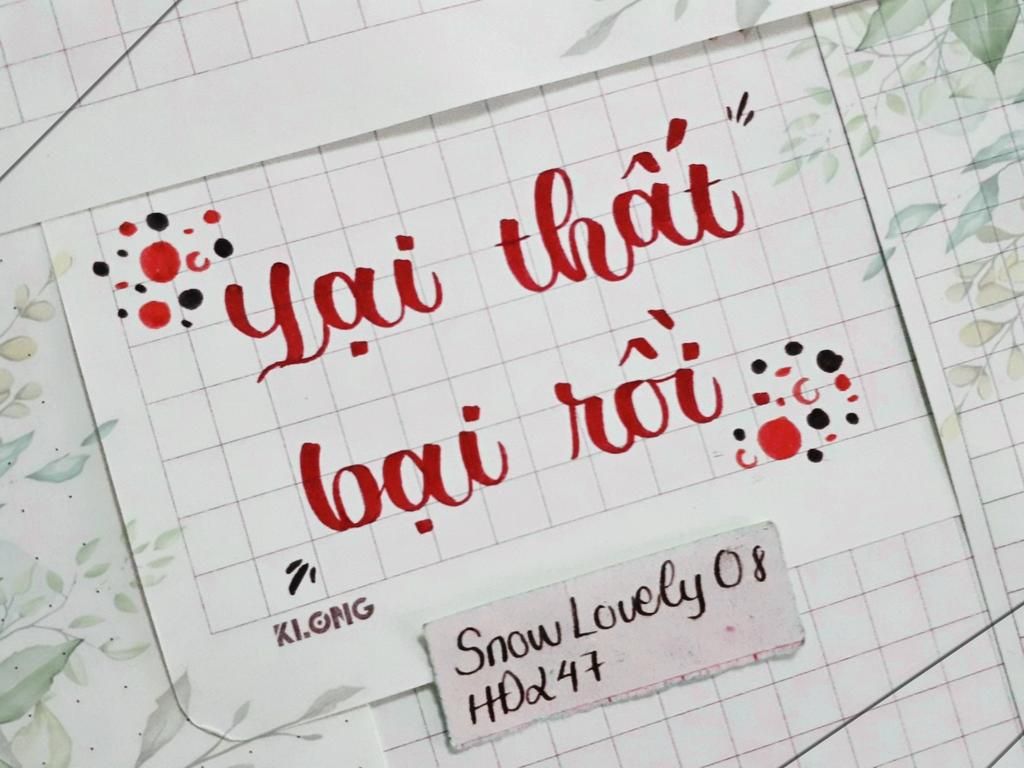 Lại thất
bại rồi
KLONG
Snow Lovely 08
HD247